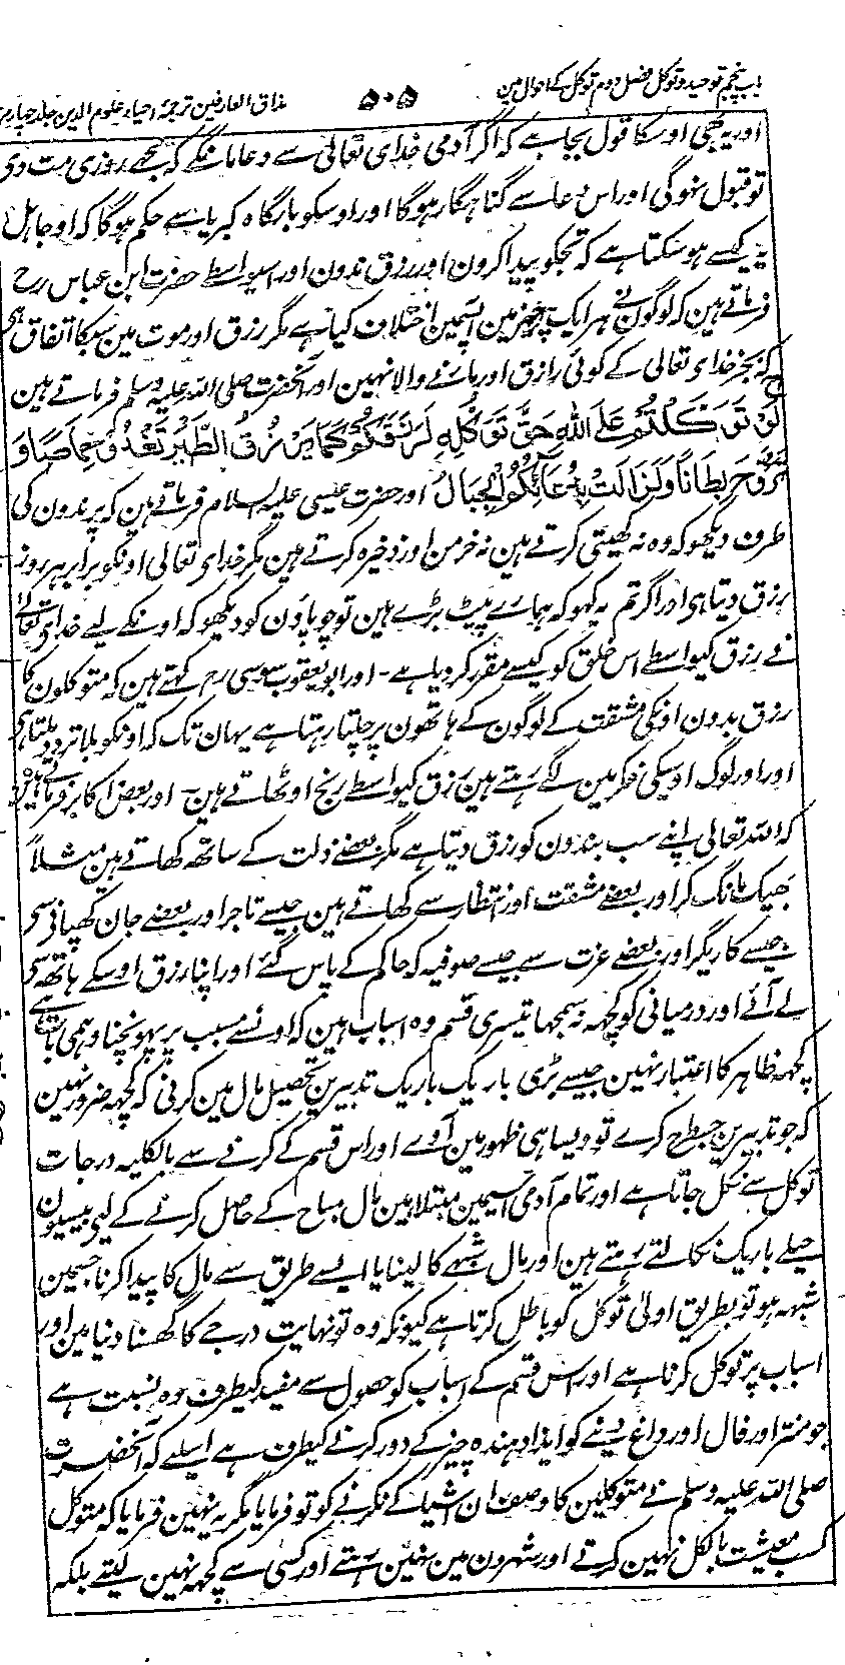 باب پنجم توحید و توکل فصل دوم توکل کے احوال مین ۵۰۵ مذاق العارفین ترجمۂ احیاء علوم الدین جلد چہارم
اور یہ بھی اوسکا قول بجا ہے کہ اگر آدمی خدای تعالیٰ سے دعا مانگے کہ مجھے روزی مت دی
تو قبول نہوگی اور اس دعا سے گناہگار ہوگا اور اوسکو بارگاہ کبریا سے حکم ہوگا کہ او جاہل
یہ کیسے ہو سکتا ہے کہ تجکو پیدا کرون اور رزق ندون اور اسیواسطے حضرت ابن عباس رح
فرماتے ہین کہ لوگون نے ہر ایک چیز مین اسمین اختلاف کیا ہے مگر رزق اور موت مین سبکا اتفاق ہی
کہ بجز خدای تعالیٰ کے کوئی رازق اور مارنے والا نہین اور آنحضرت صلی اللہ علیہ وسلم فرماتے ہین
لَوْ تَوَكَّلْتُمْ عَلَى اللّٰهِ حَقَّ تَوَكُّلِهِ لَرَزَقَكُمْ كَمَا يَرْزُقُ الطَّيْرَ تَغْدُوْ خِمَاصًا وَ
تَرُوْحُ بِطَانًا وَلَزَالَتْ بِدُعَائِكُمُ الْجِبَالُ اور حضرت عیسیٰ علیہ السلام فرماتے ہین کہ پرندون کی
طرف دیکھو کہ وہ نہ کھیتی کرتے ہین نہ خرمن اور ذخیرہ کرتے ہین مگر خدای تعالیٰ اونکو برابر ہر روز
رزق دیتا ہی اور اگر تم یہ کہو کہ ہمارے پیٹ بڑے ہین تو چوپاؤن کو دیکھو کہ اونکے لیے خدای تعالیٰ
نے رزق کیواسطے اس خلق کو کیسے مقرر کر دیا ہے - اور ابو یعقوب سوسی رح کہتے ہین کہ متوکلون کا
رزق بدون اونکی مشقت کے لوگون کے ہاتھون پر چلتا رہتا ہے یہان تک کہ اونکو بلا تردد ملتا ہی
اور اور لوگ اوسیکی فکر مین لگے رہتے ہین رزق کیواسطے رنج اوٹھاتے ہین - اور بعض اکابر فرماتے ہین
کہ اللہ تعالیٰ اپنے سب بندون کو رزق دیتا ہے مگر بعضے ذلت کے ساتھ کھاتے ہین مثلاً
بھیک مانگ کر اور بعضے مشقت اور انتظار سے کھاتے ہین جیسے تاجر اور بعضے جان کھپانی سی
جیسے کاریگر اور بعضے عزت سے جیسے صوفیہ کہ حاکم کے پاس گئے اور اپنا رزق اوسکے ہاتھ سی
لے آئے اور درمیانی کو کچھہ نہ سمجھا تیسری قسم وہ اسباب ہین کہ اونسے مسبب پر پہونچنا وہمی بات ہے
کچھہ ظاہر کا اعتبار نہین جیسے بڑی باریک باریک تدبیرین تحصیل مال مین کرنی کہ کچھہ ضرور نہین
کہ جو تدبیرین جسطرح کرے تو ویسا ہی ظہور مین آوے اور اس قسم کے کرنے سے بالکلیہ درجات
توکل سے نکل جاتا ہے اور تمام آدمی اسیمین مبتلا ہین مال مباح کے حاصل کرنے کے لیے بیسیون
حیلے باریک نکالتے رہتے ہین اور مال شبہے کا لینا یا ایسے طریق سے مال کا پیدا کرنا جسمین
شبہہ ہو تو بطریق اولیٰ توکل کو باطل کرتا ہے کیونکہ وہ تو نہایت درجے کا گھسنا دنیا مین اور
اسباب پر توکل کرنا ہے اور اس قسم کے اسباب کو حصول سے مفید کیطرف وہ نسبت ہے
جو منتر اور فال اور داغ دینے کو ایذا دہندہ چیز کے دور کرنے کیطرف ہے اسلیے کہ آنحضرت
صلی اللہ علیہ وسلم نے متوکلین کا وصف ان اشیا کے نکرنے کو تو فرمایا مگر یہ نہین فرمایا کہ متوکل
کسب معیشت بالکل نہین کرتے اور شہرون مین نہین رہتے اور کسی سے کچھہ نہین لیتے بلکہ